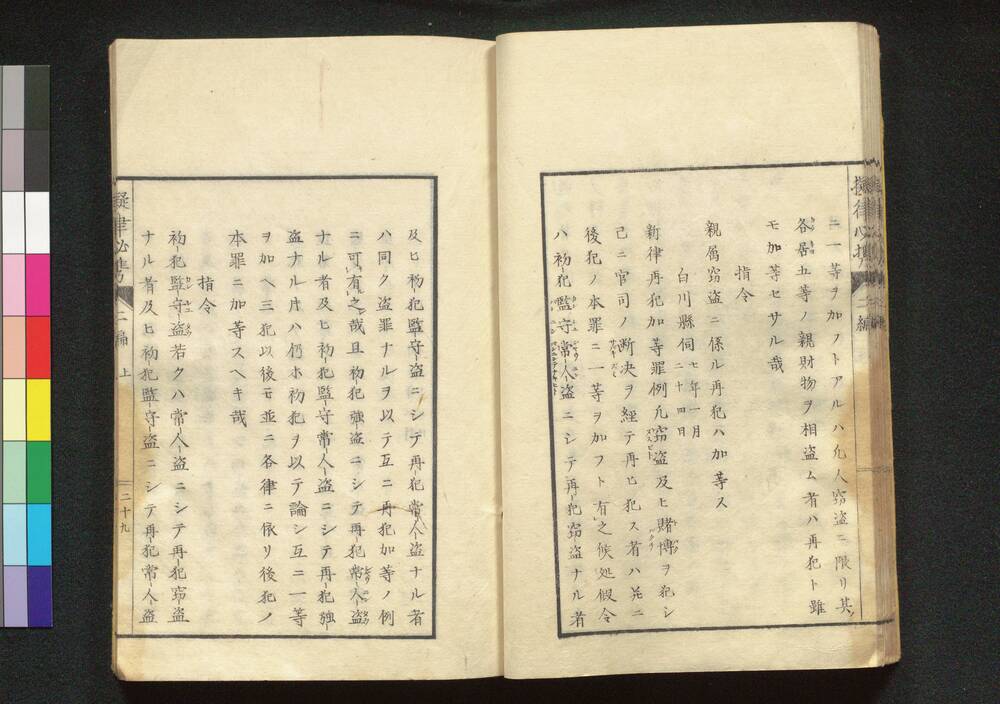 擬律必携 二編
ニ一等ヲ加フトアルハ凡人窃盗ニ限リ其
各居五等ノ親財物ヲ相盗ム者ハ再犯ト雖
モ加等セサル哉
指令
親属窃盗ニ係ル再犯ハ加等ス
白川縣伺 七年一月二十四日
新律再犯加等罪例凡窃盗及ヒ賭博ヲ犯シ
已ニ官司ノ断决ヲ經テ再ヒ犯ス者ハ並ニ
後犯ノ本罪ニ一等ヲ加フト有之候処假令
ハ初犯監守常人盗ニシテ再犯窃盗ナル者
及ヒ初犯監守盗ニシテ再犯常人盗ナル者
ハ同ク盗罪ナルヲ以テ互ニ再犯加等ノ例
ニ可有之哉且初犯強盗ニシテ再犯常人盗
ナル者及ヒ初犯監守常人盗ニシテ再犯強
盗ナル片ハ仍ホ初犯ヲ以テ論シ互ニ一等
ヲ加ヘ三犯以後モ並ニ各律ニ依リ後犯ノ
本罪ニ加等スヘキ哉
指令
初犯監守盗若クハ常人盗ニシテ再犯窃盗
ナル者及ヒ初犯監守盗ニシテ再犯常人盗
擬律必携 二編 上 二十九